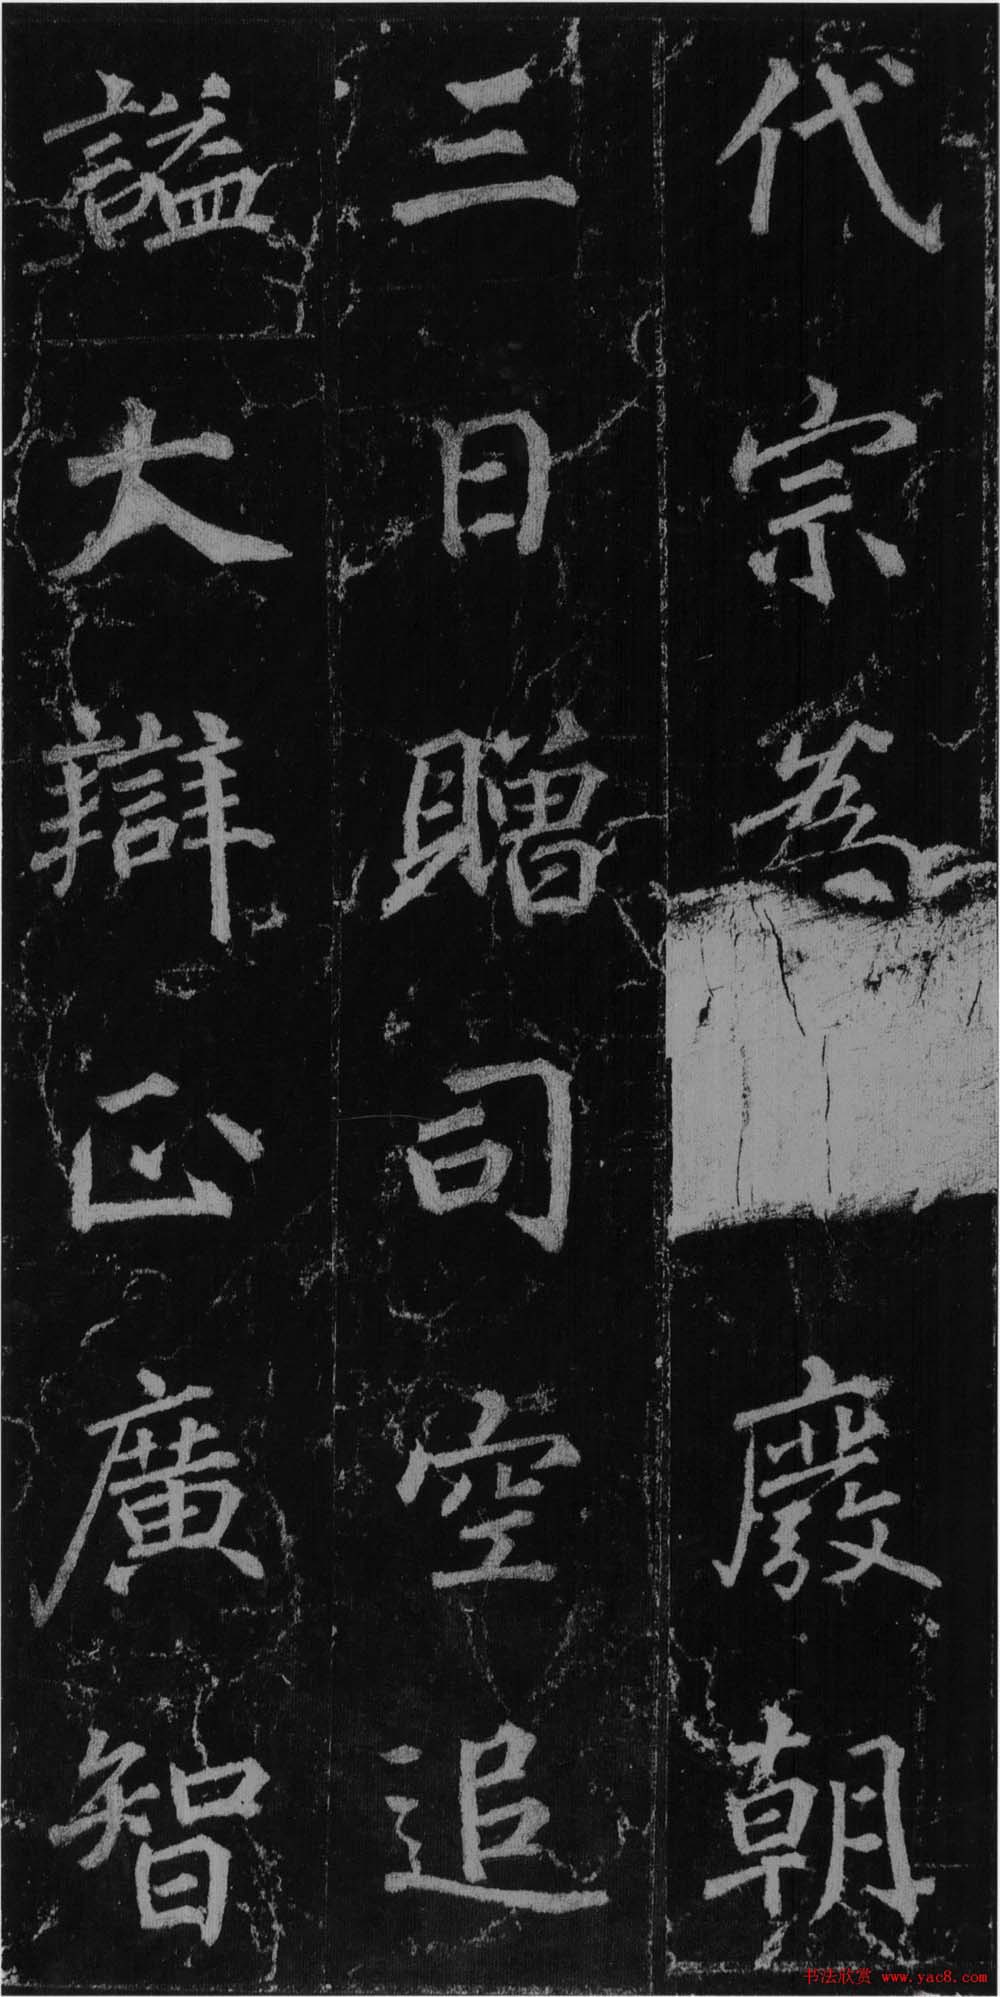 代宗為廢朝
三日贈司空追
諡大辯正廣智
书法欣赏 www.yac8.com